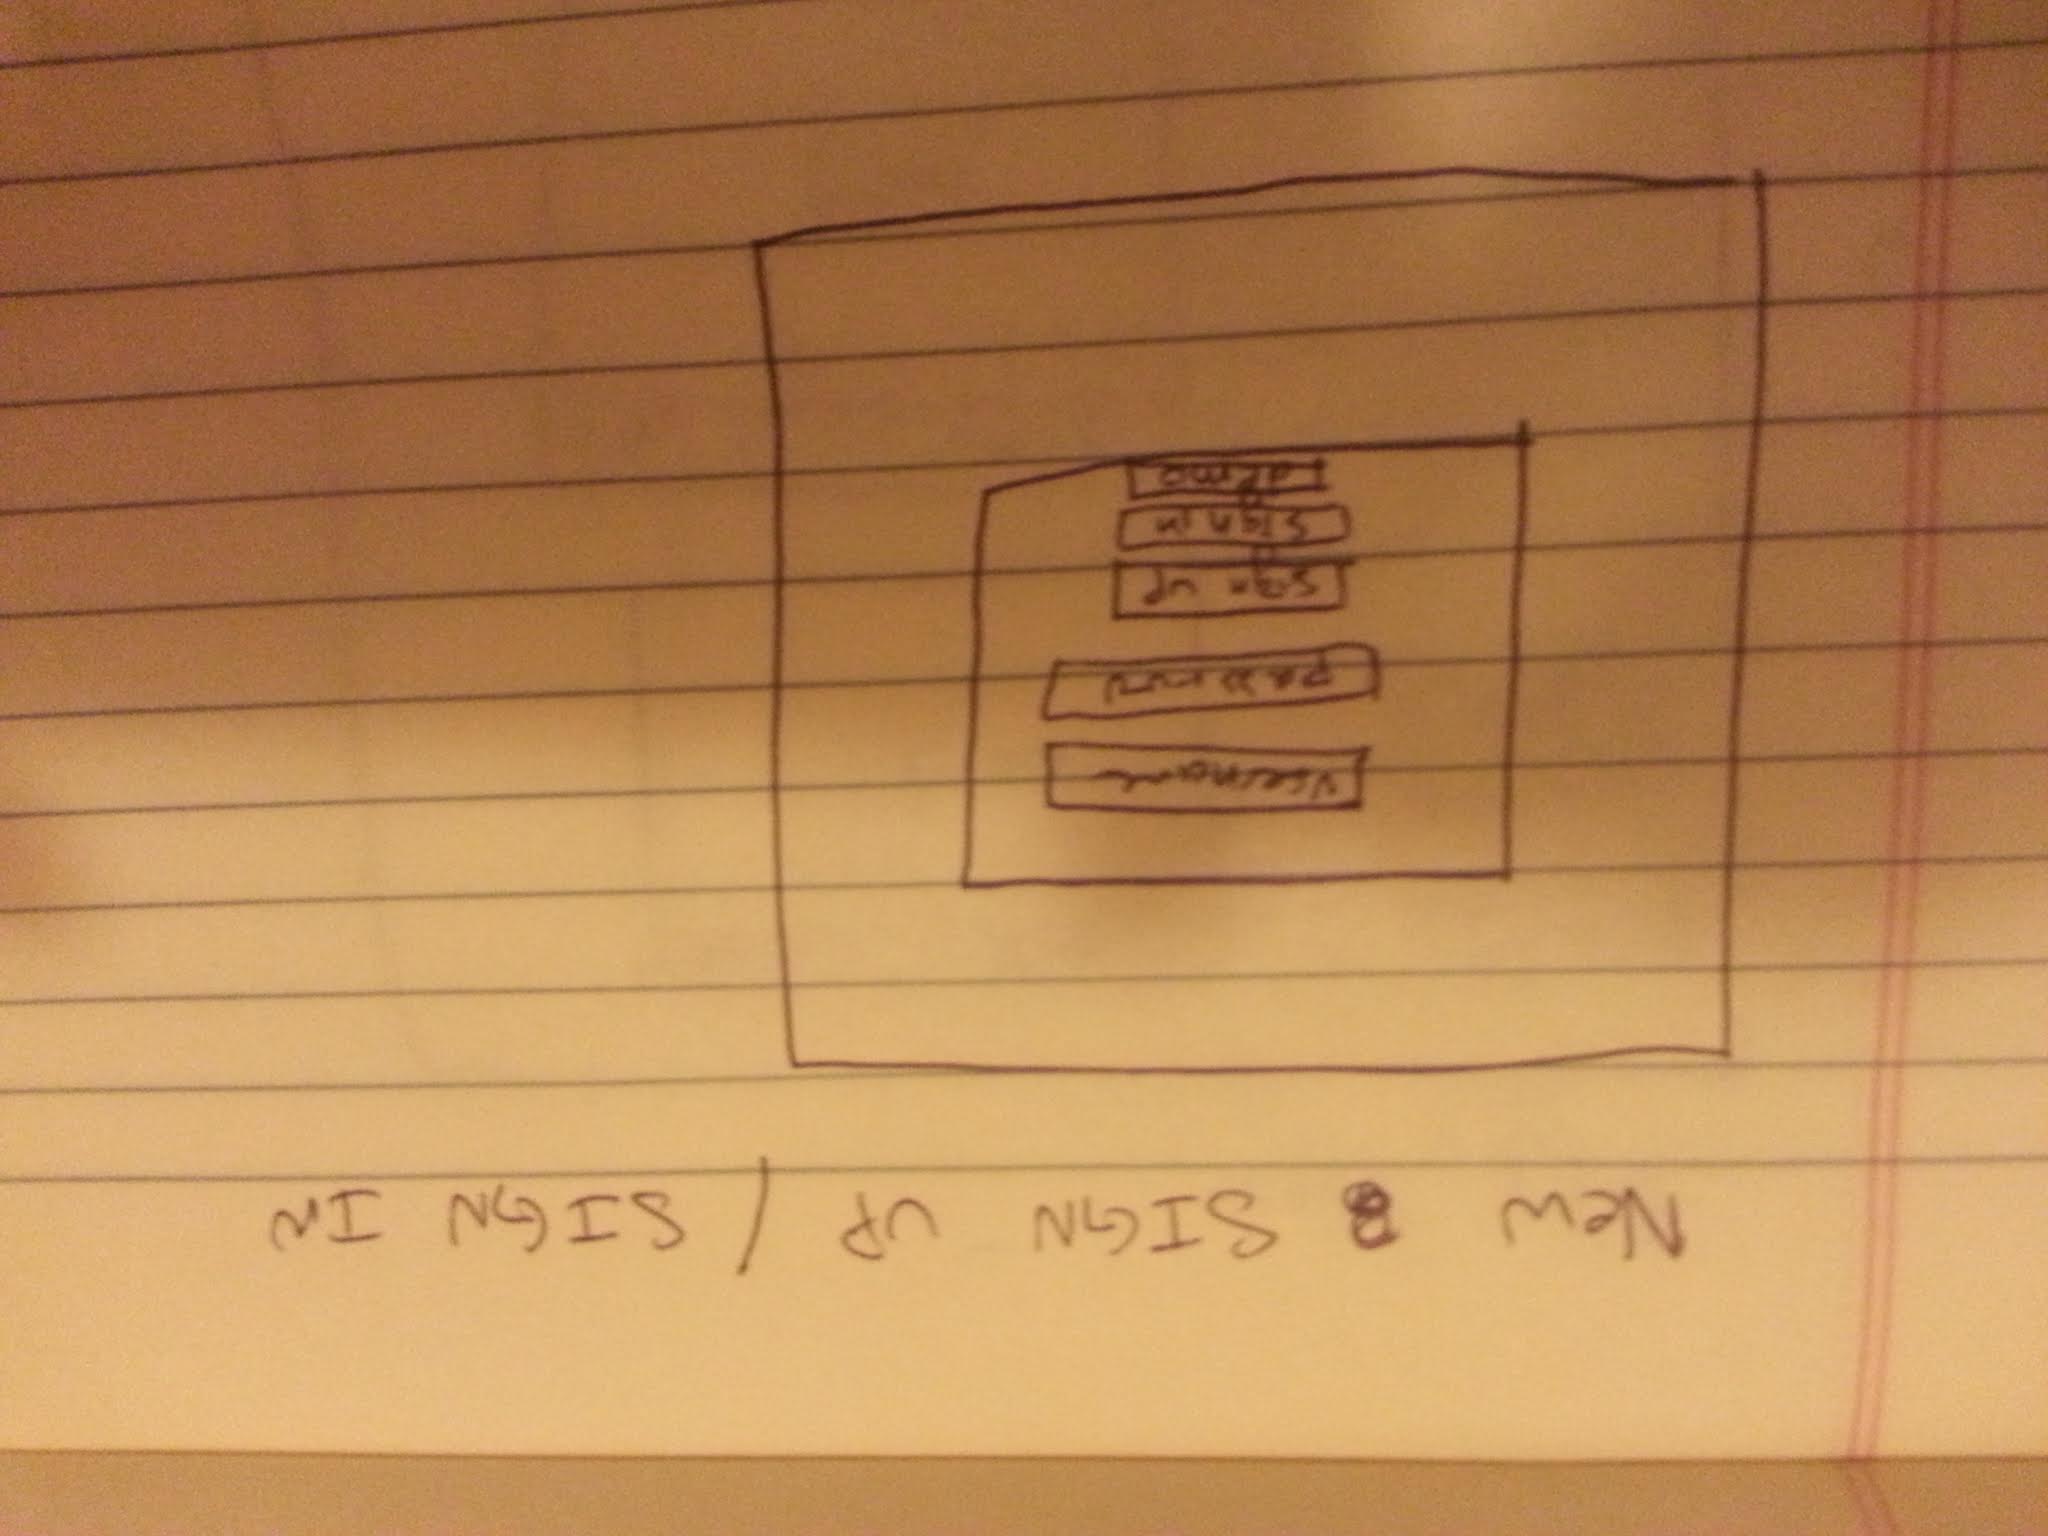 NEW SIGN UP / SIGN IN
username
password
Sign up
Sign in
demo